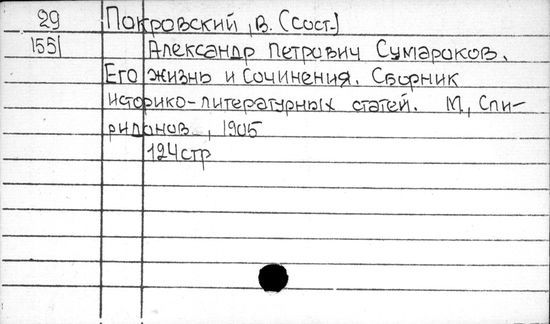 29 Покровский, В. (сост.)
1551 Александр Петрович Сумароков.
Его жизнь и сочинения. Сборник
историко-литературных статей. М., Спи-
ридонов, 1905
124 стр